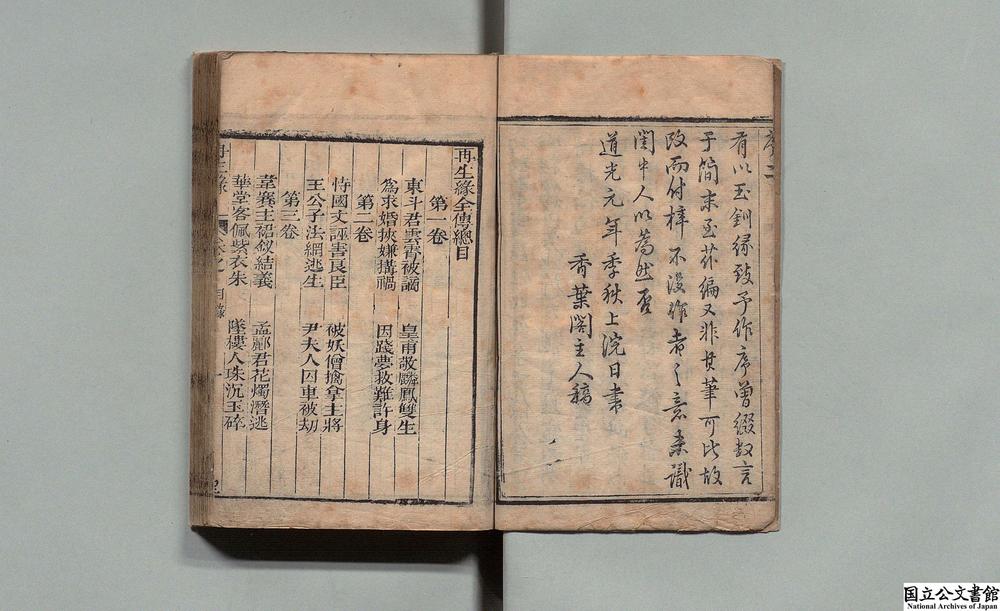 序二
有以玉釧緣致予作序曾綴数言
于简末至茲編又非其筆可比故
改而付梓不没作者之意未識
閨中人以為然否
道光元年季秋上浣日書
香葉閣主人稿
再生緣全傳總目
第一卷
東斗君雲霄被謫 皇甫敬麟鳳雙生
為求婚挾嫌搆禍 因踐夢救難許身
第二卷
恃國丈誣害良臣 被妖僧擒拿主將
王公子法網逃生 尹夫人囚車被劫
第三卷
韋寨主裙釵結義 孟酈君花燭潛逃
華堂客佩紫衣朱 墜樓人珠沉玉碎
再生緣 卷之一 目錄 一
国立公文書館
National Archives of Japan